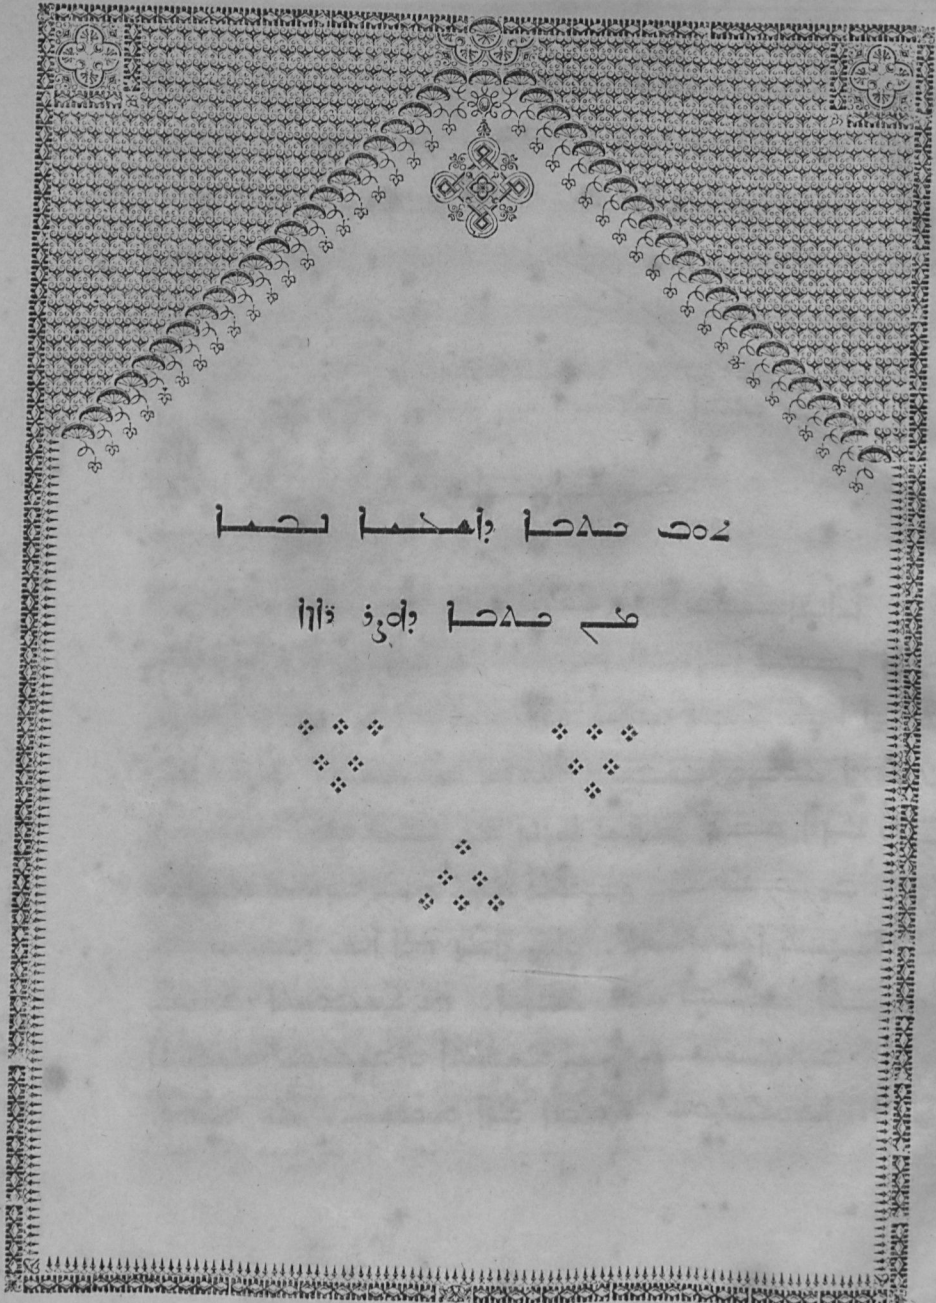 ܬܘܒ ܟܬܒܐ ܕܐܫܥܝܐ ܢܒܝܐ
ܡܢ ܟܬܒܐ ܕܐܘܨܪ ܪ̈ܐܙܐ